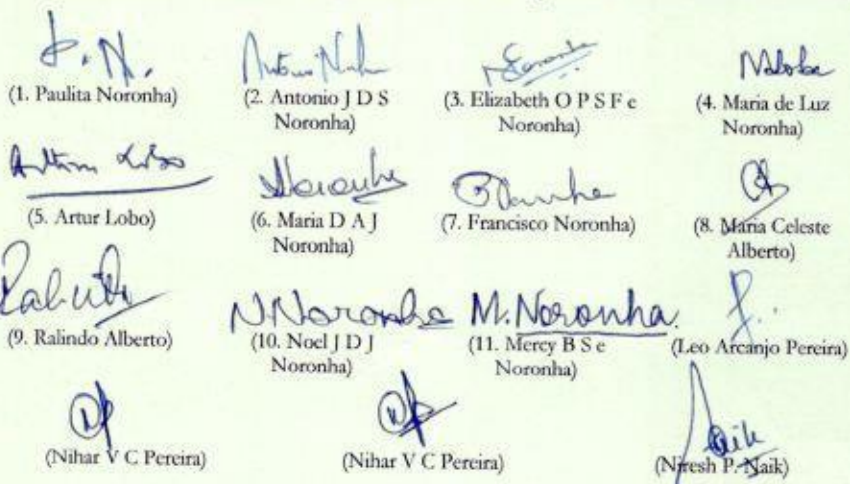 (1. Paulita Noronha)
(2. Antonio J D S
Noronha)
(3. Elizabeth O P S F e
Noronha)
(4. Maria de Luz
Noronha)
Artur Lobo
(5. Artur Lobo)
(6. Maria D A J
Noronha)
(7. Francisco Noronha)
(8. Maria Celeste
Alberto)
(9. Ralindo Alberto)
N Noronha
(10. Noel J D J
Noronha)
M. Noronha.
(11. Mercy B S e
Noronha)
(Leo Arcanjo Pereira)
(Nihar V C Pereira)
(Nihar V C Pereira)
Naik
(Niresh P. Naik)